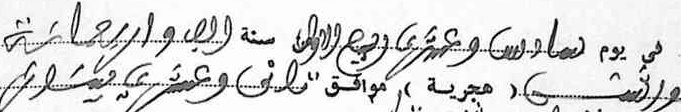 في يوم سادس وعشري ربيع الاول سنة الف واربعمائة
( هجرية ) موافق ثاني وعشري يناير